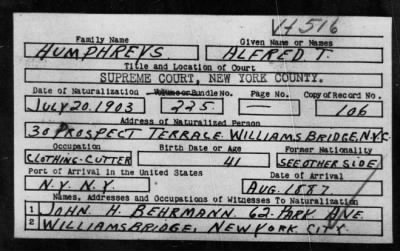 V-1516
Family Name
Given Name or Names
HUMPHREYS
ALFRED T.
Title and Location of Court
SUPREME COURT, NEW YORK COUNTY.
Date of Naturalization
Volume or Bundle No.
Page No.
Copy of Record No.
JULY 20. 1903
225
—
106
Address of Naturalized Person
30 PROSPECT TERRACE WILLIAMS BRIDGE, N.Y.C.
Occupation
Birth Date or Age
Former Nationality
CLOTHING-CUTTER
41
SEE OTHER SIDE
Port of Arrival in the United States
Date of Arrival
N.Y. N.Y.
AUG. 1887.
Names, Addresses and Occupations of Witnesses To Naturalization
1 JOHN H. BEHRMANN 62-PARK AVE
2 WILLIAMSBRIDGE, NEW YORK CITY